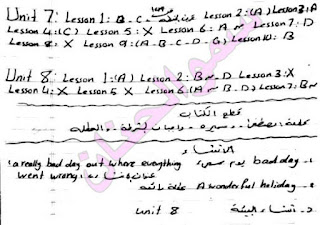 Unit 7: Lesson 1: B - C - Lesson 2: (A) Lesson 3: A
Lesson 4: (C) Lesson 5: X Lesson 6: A ~ Lesson 7: D
Lesson 8: X Lesson 9: (A - B - C - D - G) Lesson 10: B
Unit 8: Lesson 1: (A) Lesson 2: B ~ D Lesson 3: X
Lesson 4: X Lesson 5 X Lesson 6. (A ~ B - D) Lesson 7: B ~
قطع الكتاب
الانشاء
1. bad day يوم سيء a really bad day out where everything
went wrong
A wonderful holiday عطلة رائعة
د. انشاء البيئة unit 8